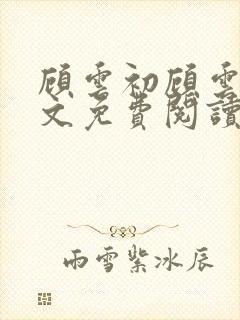 顾雲初顾雲
文免費閱讀
雨雪紫冰辰